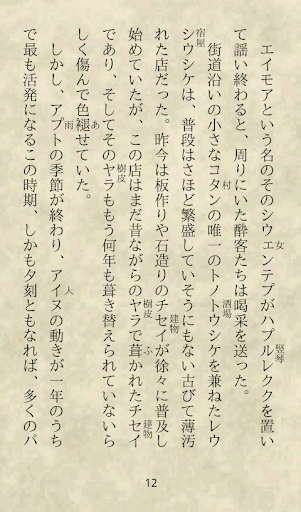 女 竪琴
エイモアという名のそのシウエンテプがハプルレククを置い
て謡い終わると、周りにいた酔客たちは喝采を送った。
村 酒場
街道沿いの小さなコタンの唯一のトノトウシケを兼ねたレウ
宿屋
シウシケは、普段はさほど繁盛していそうにもない古びて薄汚
建物
れた店だった。昨今は板作りや石造りのチセイが徐々に普及し
樹皮 ふ 建物
始めていたが、この店はまだ昔ながらのヤラで葺かれたチセイ
樹皮
であり、そしてそのヤラももう何年も葺き替えられていないら
あ
しく傷んで色褪せていた。
雨 人
しかし、アプトの季節が終わり、アイヌの動きが一年のうち
で最も活発になるこの時期、しかも夕刻ともなれば、多くのパ
12